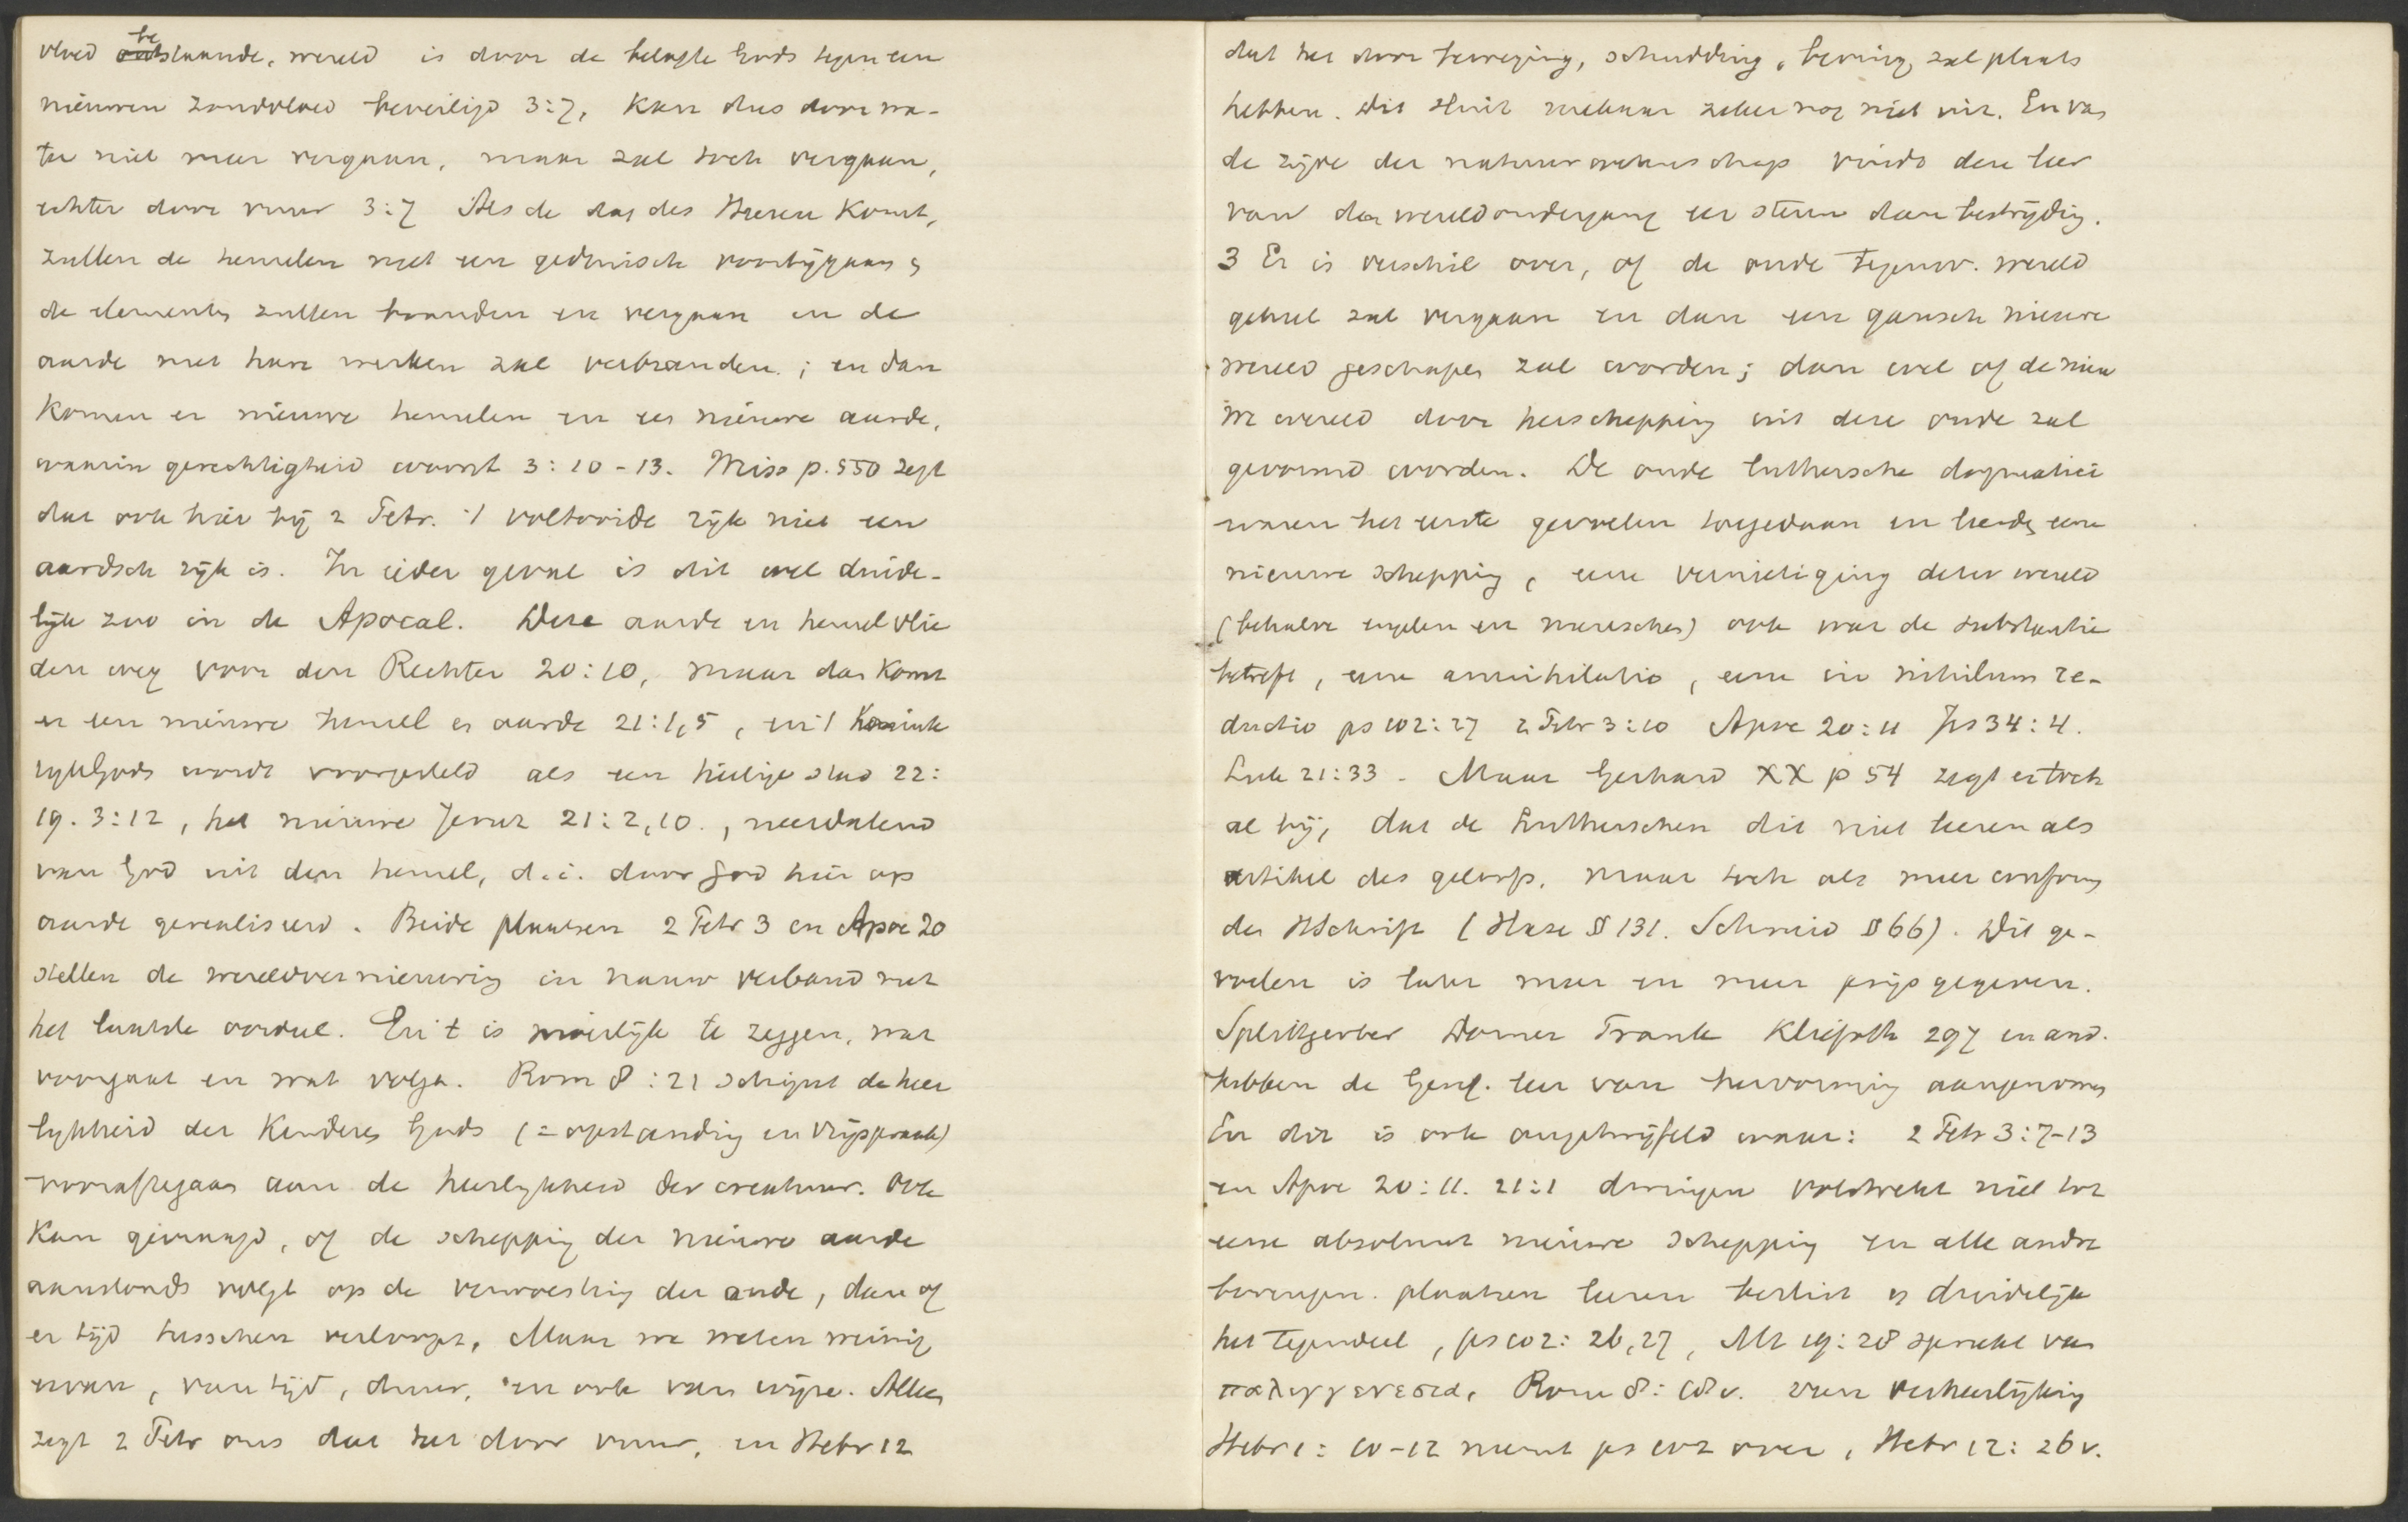 vloed bestaande, wereld is door de belofte Gods tegen een
nieuwen zondvloed beveiligd 3:7, kan dus door wa-
ter niet meer vergaan, maar zal toch vergaan,
echter door vuur 3:7 Als de dag des Heeren komt,
zullen de hemelen met een gedruisch voorbijgaan,
de elementen zullen branden en vergaan en de
aarde met hare werken zal verbranden; en dan
komen er nieuwe hemelen en een nieuwe aarde,
waarin gerechtigheid woont 3:10-13. Miss p.550 zegt
dat ook hier bij 2 Petr. 't voltooide rijk niet een
aardsch rijk is. In ieder geval is dit wel duide-
lijk zoo in de Apocal. Deze aarde en hemel vlie
den weg voor den Rechter 20:10, maar dan komt
er een nieuwe hemel en aarde 21:1,5, en 't Konink
rijk Gods wordt voorgesteld als een heilige stad 22:
19. 3:12, het nieuwe Jeruz 21:2,10., neerdalend
van God uit den hemel, d.i. door God hier op
aarde gerealiseerd. Beide plaatsen 2 Petr 3 en Apoc 20
stellen de wereldvernieuwing in nauw verband met
het laatste oordeel. En 't is moeilijk te zeggen, wat
voorgaat en wat volgt. Rom 8:21 schijnt de heer
lijkheid der Kinderen Gods (= opstanding en vrijspraak)
vooraftegaan aan de heerlijkheid der creatuur. Ook
kan gevraagd, of de schepping der nieuwe aarde
aanstonds volgt op de verwoesting der oude, dan of
er tijd tusschen verloopt. Maar we weten weinig
ervan, van tijd, duur, en ook van wijze. Alleen
zegt 2 Petr ons dat het door vuur, en Hebr 12
dat het door beweging, schudding, beving zal plaats
hebben. Dit sluit malkaar zeker nog niet uit. En van
de zijde der natuurwetenschap vindt deze leer
van den wereldondergang eer steun dan bestrijding.
3 Er is verschil over, of de oude tegenw. wereld
geheel zal vergaan en dan een gansch nieuwe
wereld geschapen zal worden; dan wel of de nieu
we wereld door herschepping uit deze oude zal
gevormd worden. De oude luthersche dogmatici
waren het eerste gevoelen toegedaan en leerden eene
nieuwe schepping, eene vernietiging dezer wereld
(behalve engelen en menschen) ook wat de substantie
betreft, eene annihilatio, eene in nihilum re-
ductio ps 102:27 2 Petr 3:10 Apoc 20:11 Jes 34:4.
Luk 21:33 - Maar Gerhard XX p 54 zegt er toch
al bij, dat de Lutherschen dit niet leeren als
artikel des geloofs, maar toch als meer conform
der HSchrift (Hase § 131. Schmid § 66). Dit ge-
voelen is later meer en meer prijsgegeven.
Splittgerber Dorner Frank Kliefoth 297 en and.
hebben de Geref. leer van hervorming aangenomen
En dit is ook ongetwijfeld waar: 2 Petr 3:7-13
en Apoc 20:11. 21:1 dwingen volstrekt niet tot
eene absoluut nieuwe schepping en alle andre
bovengen. plaatsen leeren beslist en duidelijk
het tegendeel, ps 102:26,27, Mt 19:28 spreekt van
παλιγγενεσια, Rom 8:18v. van verheerlijking
Hebr 1:10-12 neemt ps 102 over, Hebr 12:26v.